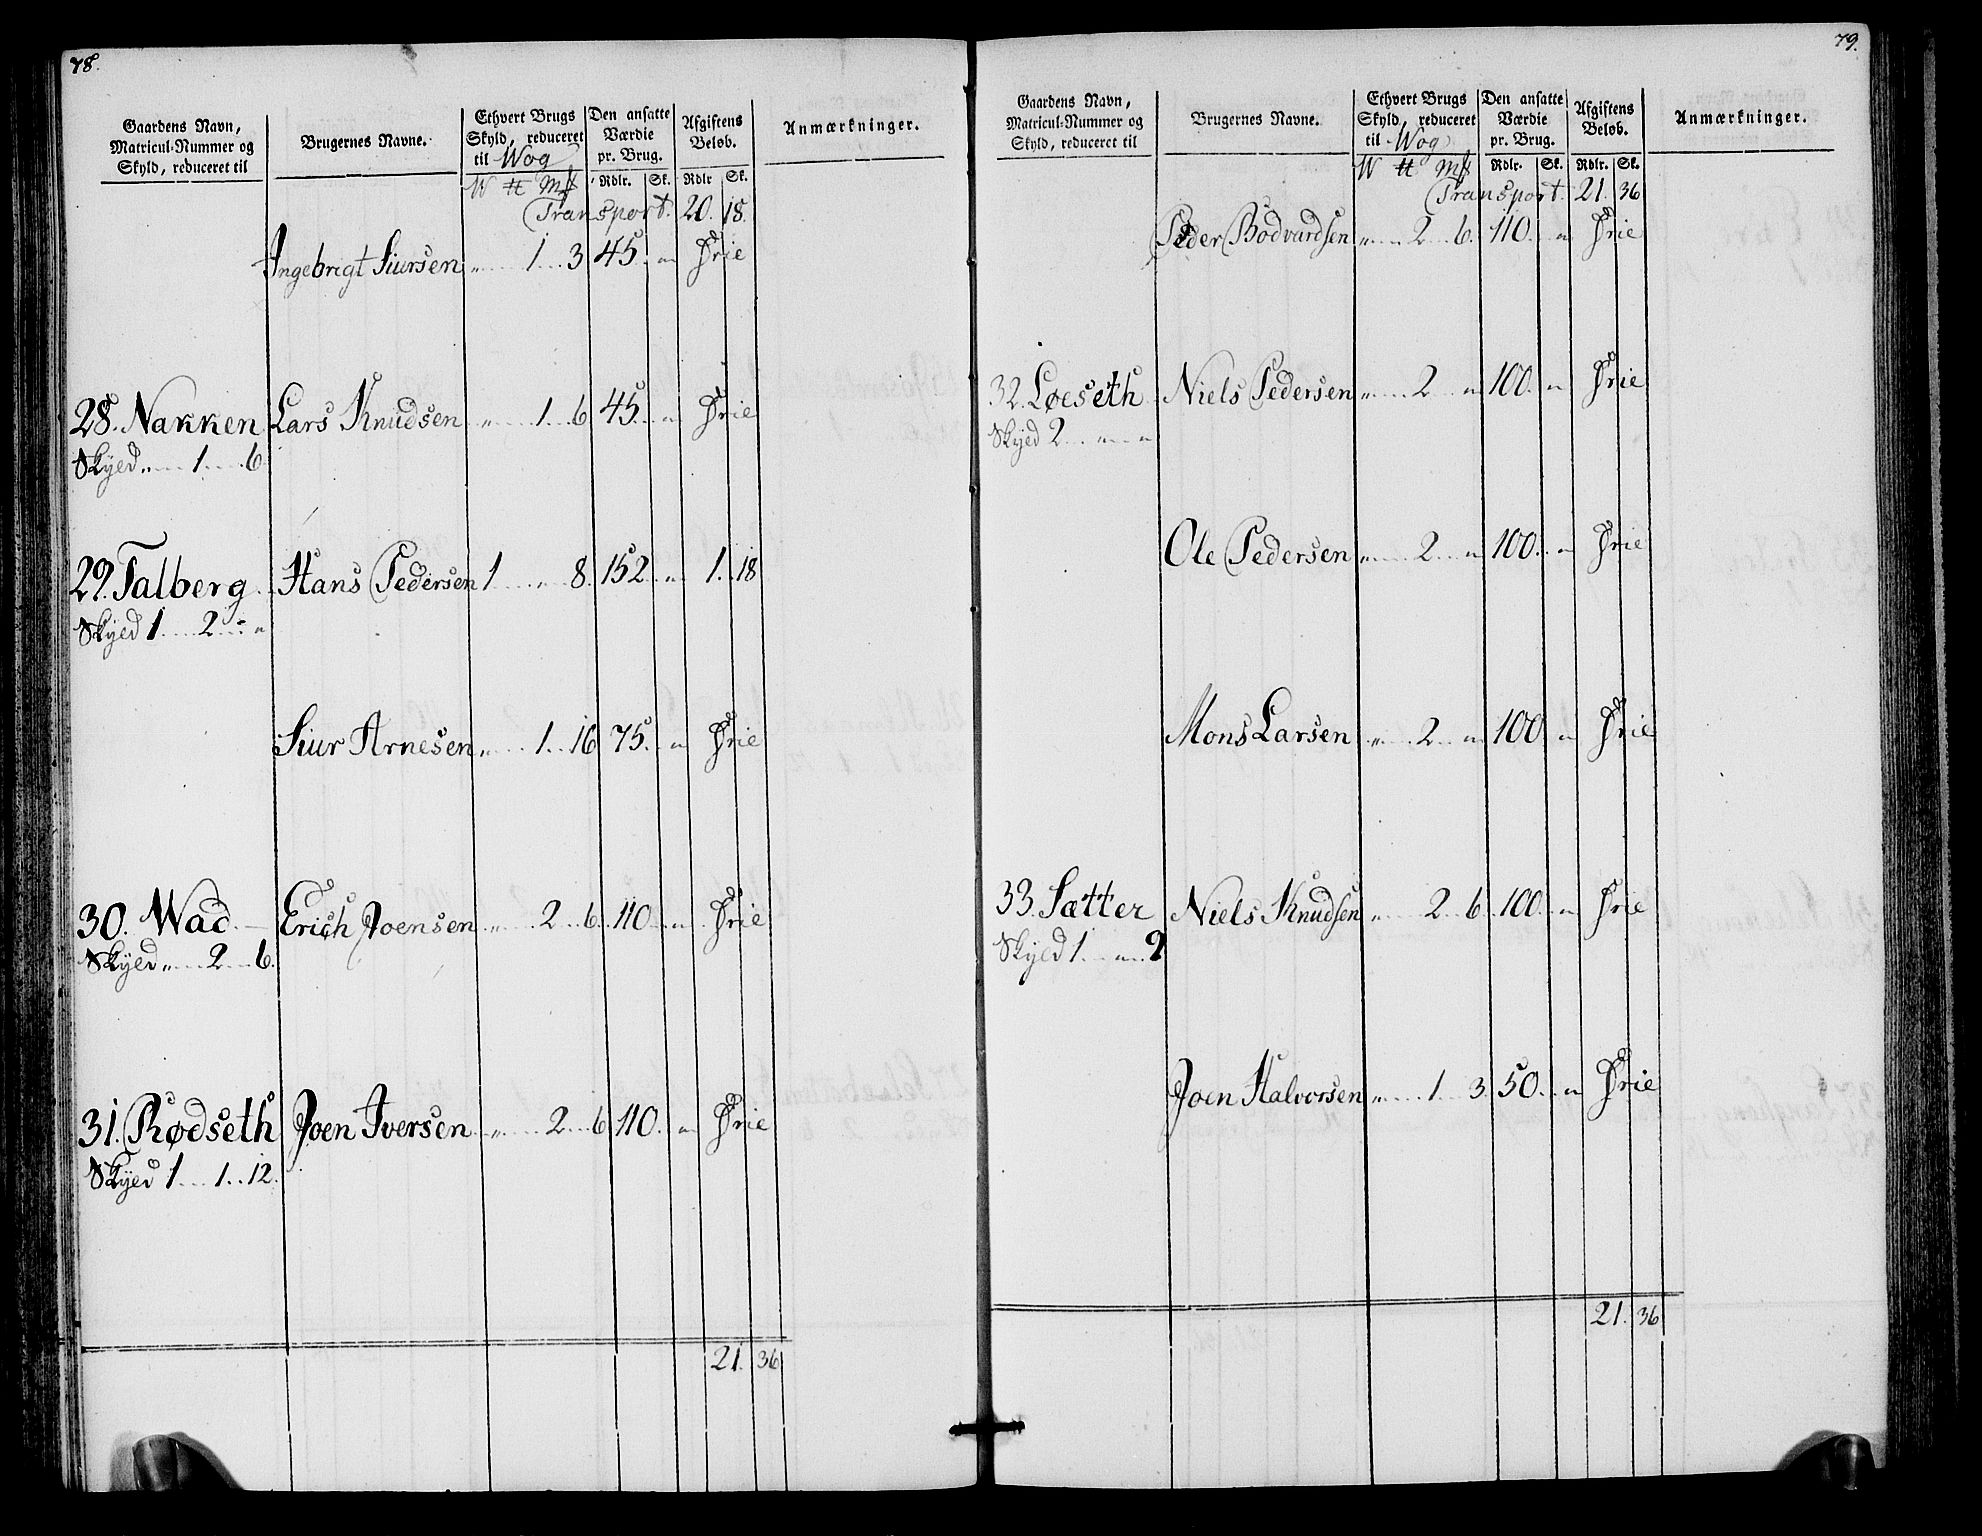 78.
Gaardens Navn, Matricul-Nummer og Skyld, reduceret til
Brugernes Navne.
Ethvert Brugs Skyld, reduceret til Wog
Den ansatte Værdie pr. Brug.
Afgiftens Beløb.
Anmærkninger.
W ℔ Mk Rdlr. Sk. Rdlr Sk.
Transport. 20. 18.
Ingebrigt Siursen „ 1 3 45. „ Frie
28. Nakken Lars Knudsen „ 1 6 45. „ Frie
Skyed „ 1 6
29. Talberg Hans Pedersen 1 „ 8. 152. „ 1. 18
Skyed 1 2 „
Siur Arnesen „ 1 16 75. „ Frie
30. Wad Erich Joensen „ 2 6. 110. „ Frie
Skyed „ 2 6.
31. Rødseth Joen Iversen „ 2 6 110. „ Frie
Skyed 1 1 12.
21. 36
79.
Gaardens Navn, Matricul-Nummer og Skyld, reduceret til
Brugernes Navne.
Ethvert Brugs Skyld, reduceret til Wog
Den ansatte Værdie pr. Brug.
Afgiftens Beløb.
Anmærkninger.
W ℔ Mk Rdlr. Sk. Rdlr. Sk.
Transport. 21. 36
Peder Bodvardsen „ 2 6. 110. „ Frie
32. Løeseth Niels Pedersen „ 2 „ 100. „ Frie
Skyed 2 „ „
Ole Pedersen „ 2 „ 100. „ Frie
Mons Larsen „ 2 „ 100 „ Frie
33. Sætter Niels Knudsen „ 2 6 100. „ Frie
Skyed 1 „ 9
Joen Halvorsen „ 1 3. 50. „ Frie
21. 36